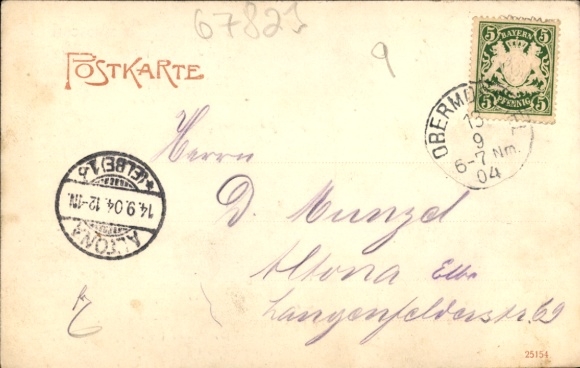 67825
9
POSTKARTE
5 BAYERN 5
5 PFENNIG 5
13
9
6-7 Nm.
04
ALTONA
14.9.04.12-1N.
*(ELBE)1
Herrn
D. Munzel
Altona Elbe
Langenfelderstr 62
25154